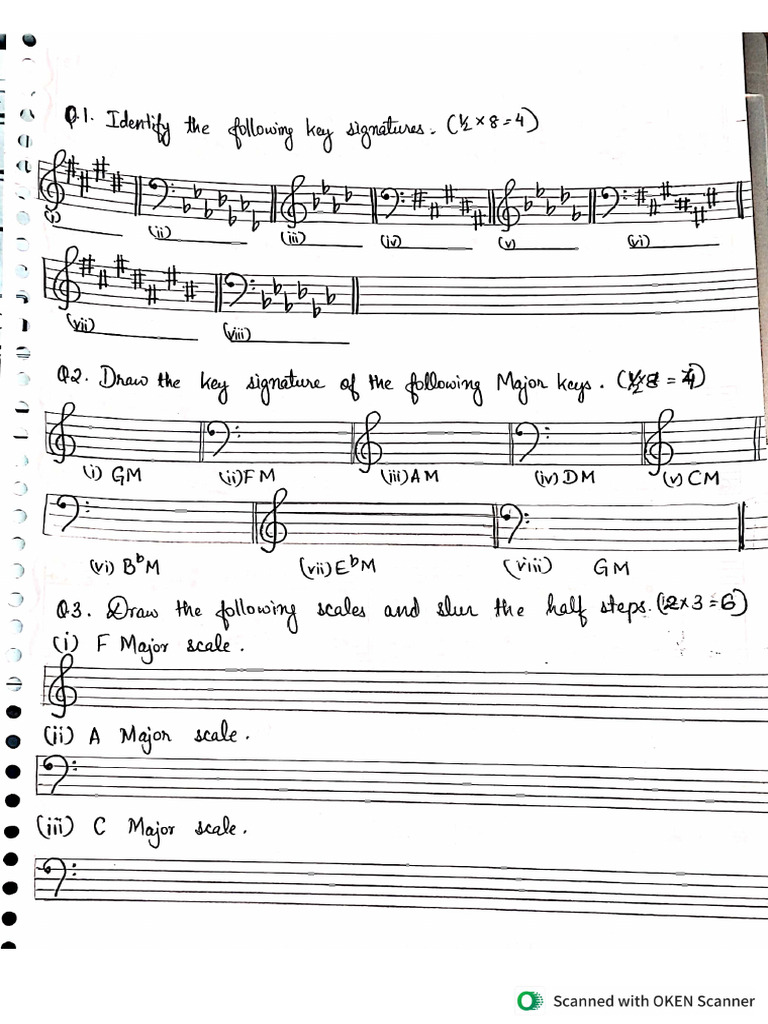 Q.1. Identify the following key signatures. (½ × 8 = 4)
(i) (ii) (iii) (iv) (v) (vi)
(vii) (viii)
Q2. Draw the key signature of the following Major keys. (½ × 8 = 4)
(i) GM (ii) FM (iii) AM (iv) DM (v) CM
(vi) BbM (vii) EbM (viii) GM
Q3. Draw the following scales and slur the half steps. (2×3=6)
(i) F Major scale.
(ii) A Major scale.
(iii) C Major scale.
Scanned with OKEN Scanner